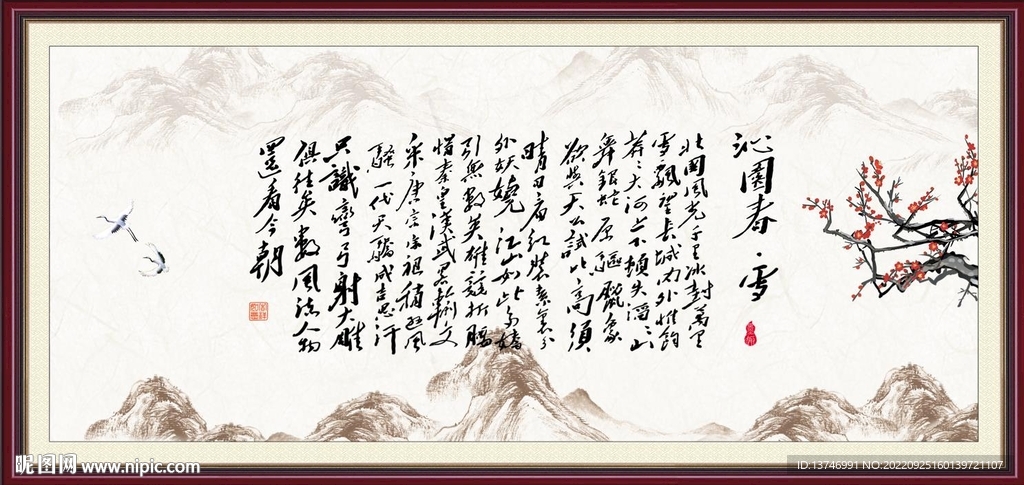 沁園春·雪
北國風光千里冰封萬里
雪飄望長城內外惟餘
莽〻大河上下頓失滔〻山
舞銀蛇原驅蠟象
欲與天公試比高須
晴日看紅裝素裹分
外妖嬈江山如此多嬌
引無數英雄競折腰
惜秦皇漢武略輸文
采唐宗宋祖稍遜風
騷一代天驕成吉思汗
只識彎弓射大雕
俱往矣數風流人物
還看今朝
昵图网 www.nipic.com
ID:13746991 NO:20220925160139721107